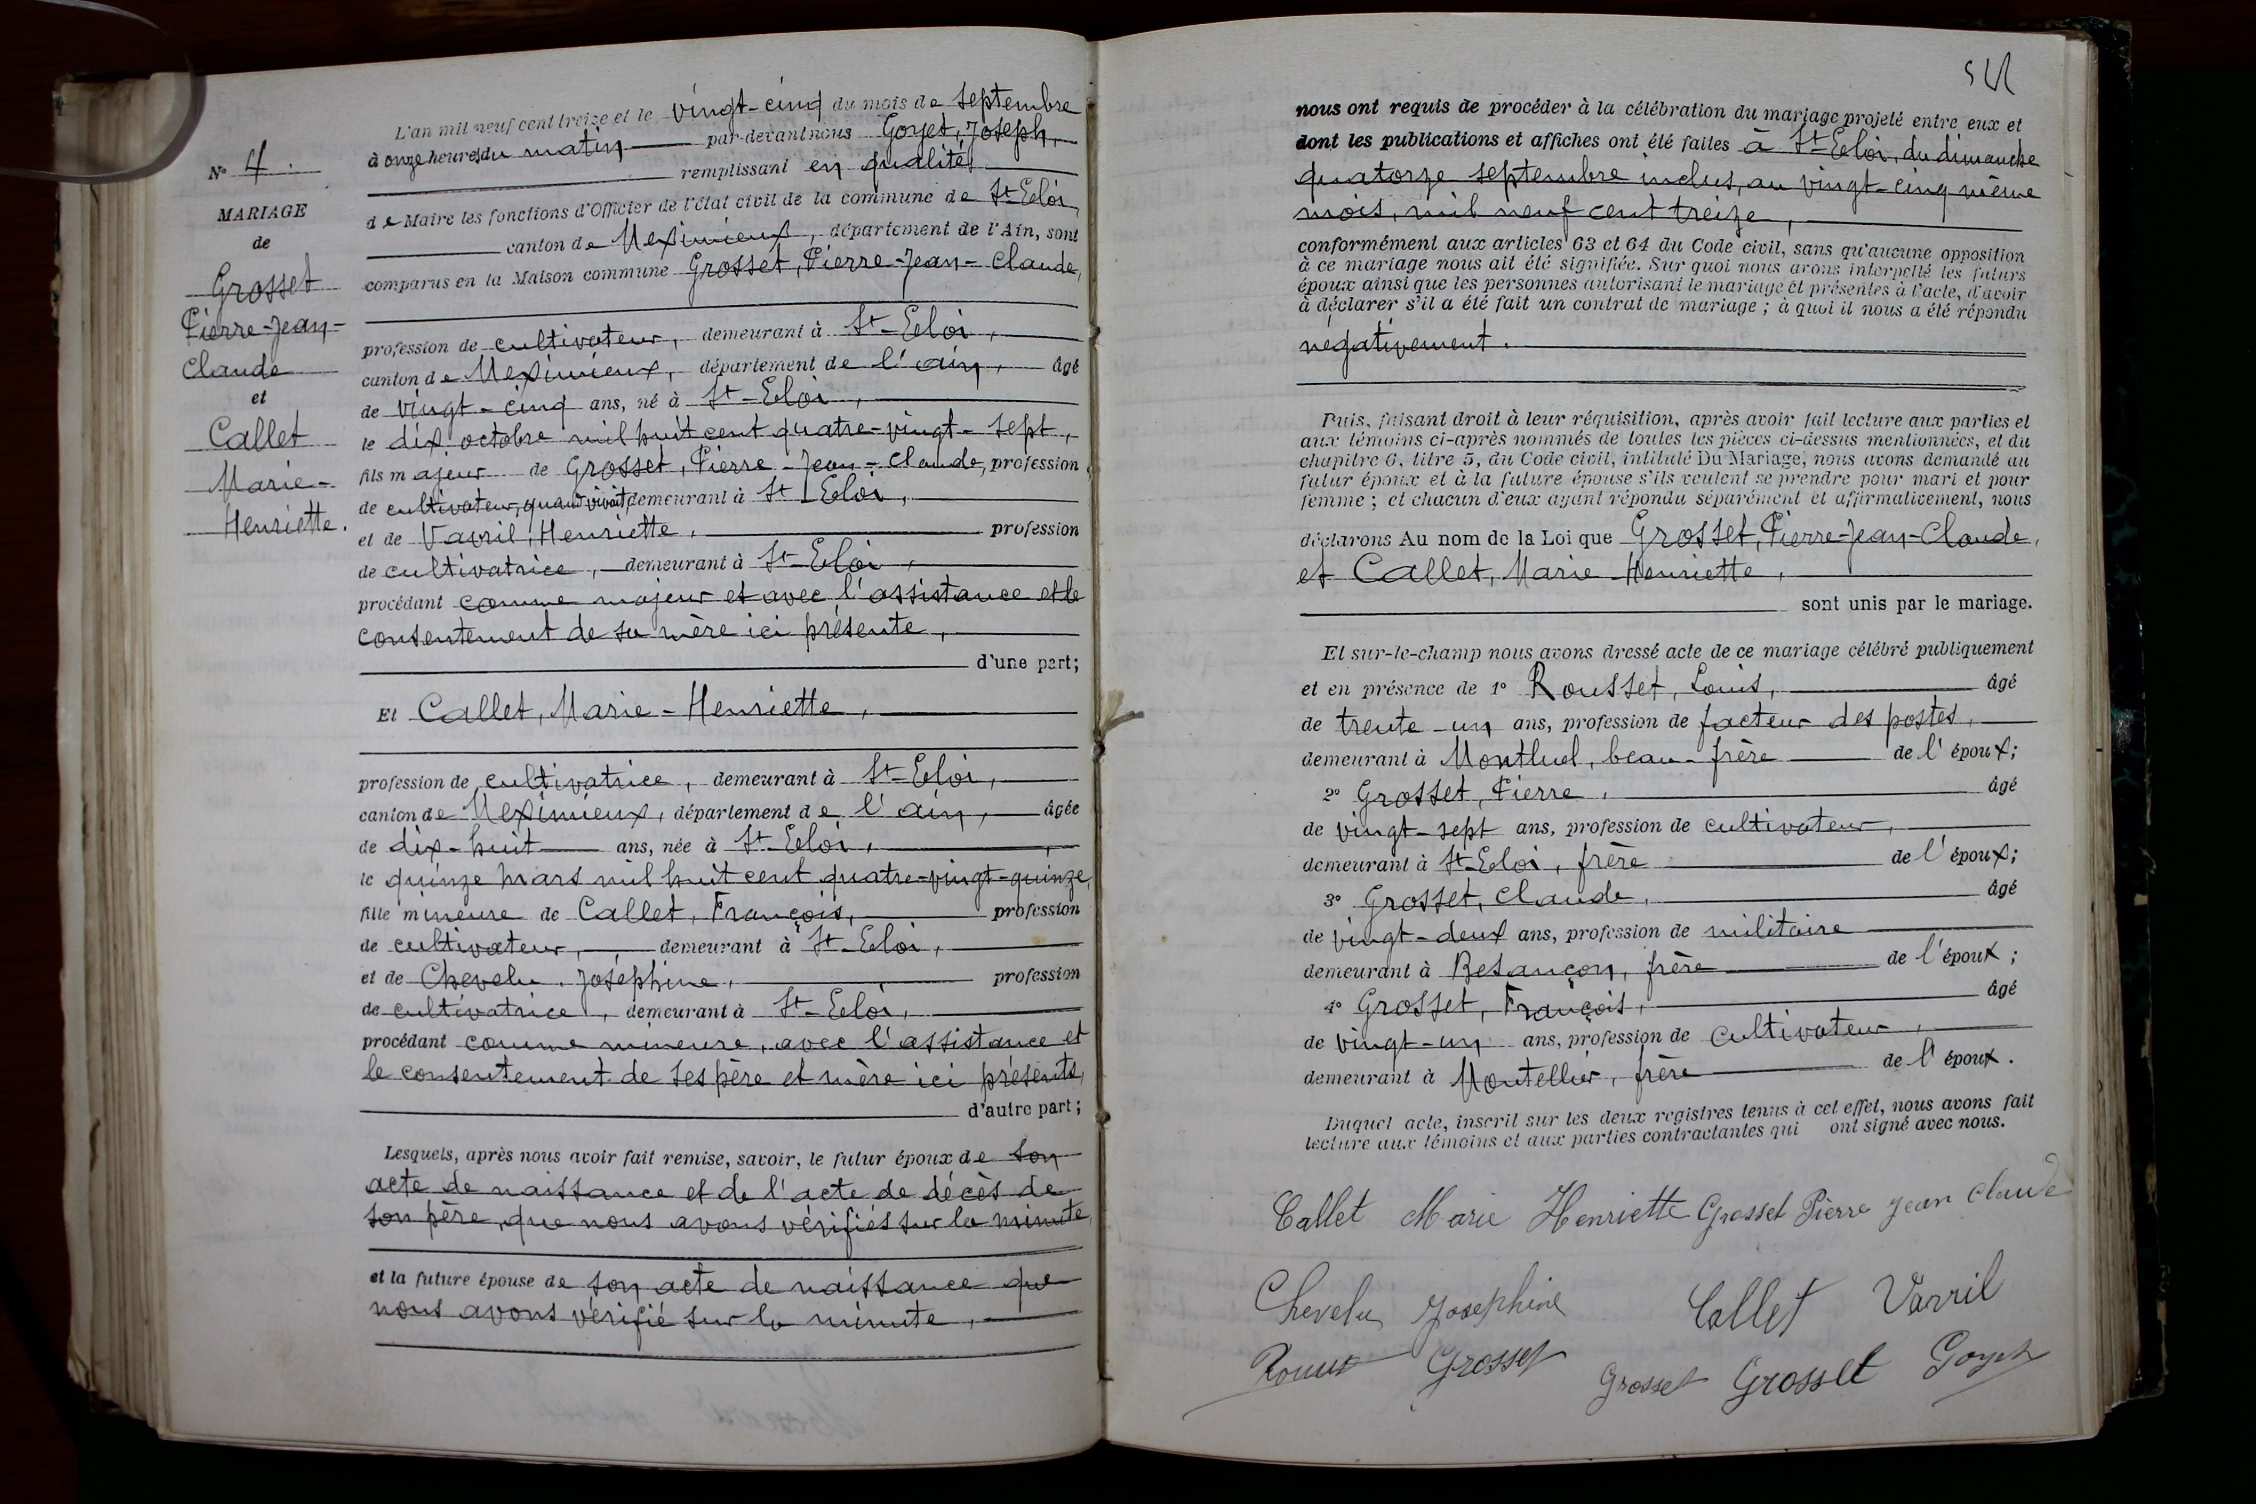 L'an mil neuf cent treize et le vingt-cinq du mois de septembre
à onze heures du matin par-devant nous Goyet, Joseph,
remplissant en qualité
de Maire les fonctions d'Officier de l'état civil de la commune de St-Eloi,
canton de Meximieux, département de l'Ain, sont
comparus en la Maison commune Grosset, Pierre-Jean-Claude,
profession de cultivateur, demeurant à St-Eloi,
canton de Meximieux, département de l'ain, âgé
de vingt-cinq ans, né à St-Eloi,
le dix octobre mil huit cent quatre-vingt-sept,
fils majeur de Grosset, Pierre-Jean-Claude, profession
de cultivateur, quand vivait, demeurant à St-Eloi,
et de Vavril, Henriette, profession
de cultivatrice, demeurant à St-Eloi,
procédant comme majeur et avec l'assistance et le
consentement de sa mère ici présente,
d'une part;
Et Callet, Marie-Henriette,
profession de cultivatrice, demeurant à St-Eloi,
canton de Meximieux, département de l'ain, âgée
de dix-huit ans, née à St-Eloi,
le quinze mars mil huit cent quatre-vingt-quinze,
fille mineure de Callet, François, profession
de cultivateur, demeurant à St-Eloi,
et de Chevelu, Joséphine, profession
de cultivatrice, demeurant à St-Eloi,
procédant comme mineure, avec l'assistance et
le consentement de ses père et mère ici présents,
d'autre part;
Lesquels, après nous avoir fait remise, savoir, le futur époux de son
acte de naissance et de l'acte de décès de
son père, que nous avons vérifiés sur la minute,
et la future épouse de son acte de naissance que
nous avons vérifié sur la minute,
N° 4.
MARIAGE
de
Grosset
Pierre-Jean-
Claude
et
Callet
Marie-
Henriette.
nous ont requis de procéder à la célébration du mariage projeté entre eux et
dont les publications et affiches ont été faites à St-Eloi, du dimanche
quatorze septembre inclus, au vingt-cinq même
mois, mil neuf cent treize,
conformément aux articles 63 et 64 du Code civil, sans qu'aucune opposition
à ce mariage nous ait été signifiée. Sur quoi nous avons interpellé les futurs
époux ainsi que les personnes autorisant le mariage et présentes à l'acte, d'avoir
à déclarer s'il a été fait un contrat de mariage; à quoi il nous a été répondu
négativement.
Puis, faisant droit à leur réquisition, après avoir fait lecture aux parties et
aux témoins ci-après nommés de toutes les pièces ci-dessus mentionnées, et du
chapitre 6, titre 5, du Code civil, intitulé Du Mariage, nous avons demandé au
futur époux et à la future épouse s'ils veulent se prendre pour mari et pour
femme; et chacun d'eux ayant répondu séparément et affirmativement, nous
déclarons Au nom de la Loi que Grosset, Pierre-Jean-Claude,
et Callet, Marie-Henriette,
sont unis par le mariage.
Et sur-le-champ nous avons dressé acte de ce mariage célébré publiquement
et en présence de 1° Rousset, Louis, âgé
de trente-un ans, profession de facteur des postes,
demeurant à Montluel, beau-frère de l'époux;
2° Grosset, Pierre, âgé
de vingt-sept ans, profession de cultivateur,
demeurant à St-Eloi, frère de l'époux;
3° Grosset, Claude, âgé
de vingt-deux ans, profession de militaire
demeurant à Besançon, frère de l'époux;
4° Grosset, François, âgé
de vingt-un ans, profession de cultivateur,
demeurant à Montellier, frère de l'époux.
Duquel acte, inscrit sur les deux registres tenus à cet effet, nous avons fait
lecture aux témoins et aux parties contractantes qui ont signé avec nous.
Callet Marie Henriette Grosset Pierre Jean Claude
Chevelu Josephine Callet Vavril
Grosset Grosset Grosset Goyet